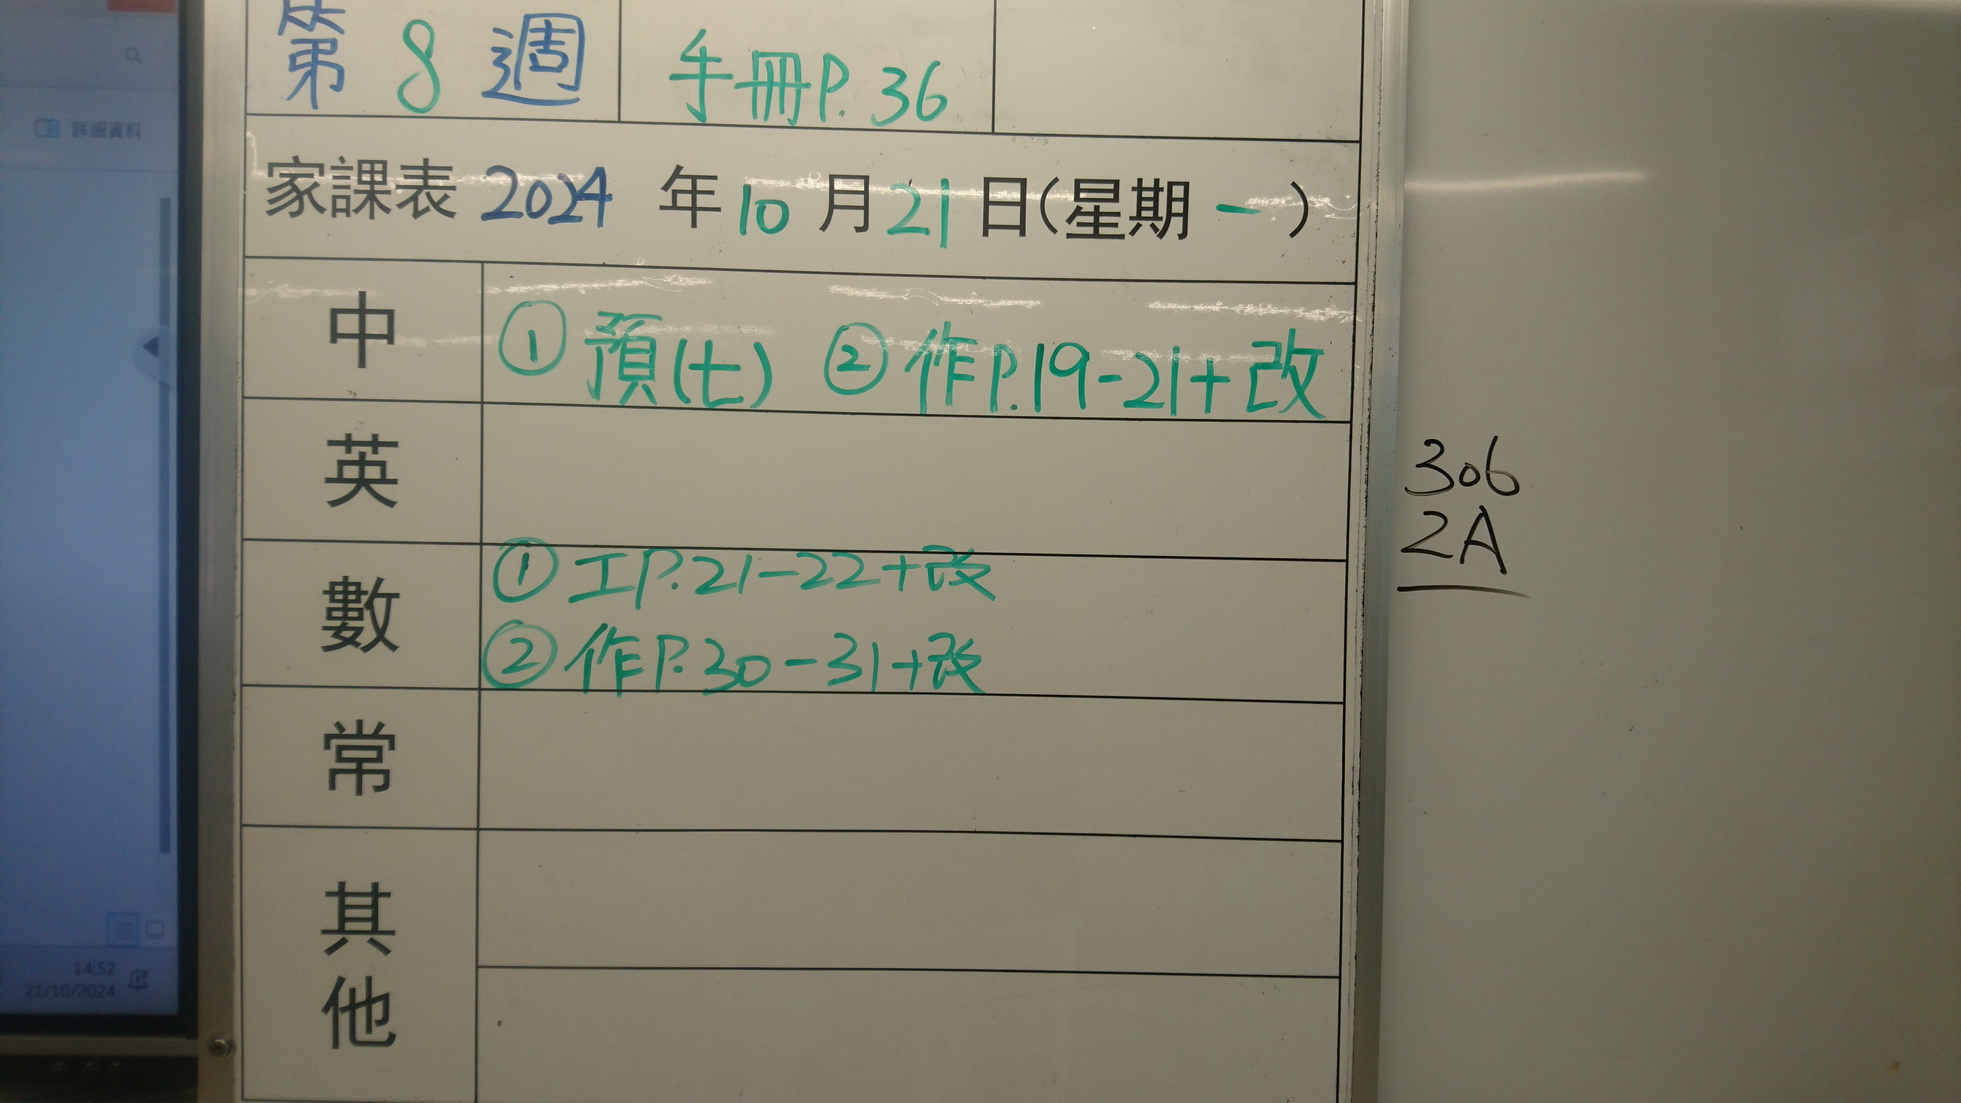 詳細資料
第 8 週 手冊P.36
家課表 2024 年 10 月 21 日(星期 一 )
中 ① 預(七) ② 作P.19-21+改
英
數 ① 工P.21-22+改
② 作P.30-31+改
常
其他
306
2A
14:52
21/10/2024